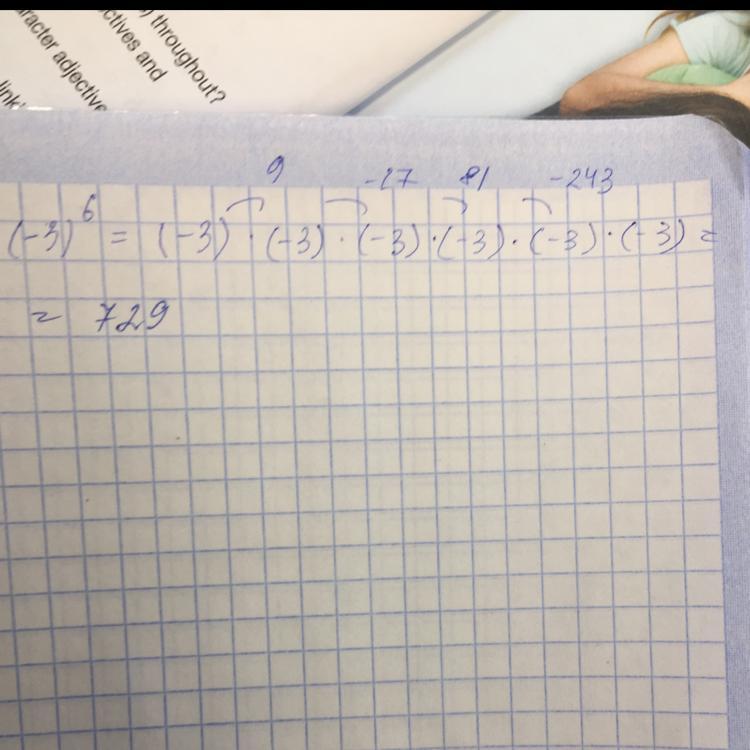 throughout?
ctives and
aracter adjective
link
9 -27 81 -243
(-3)⁶ = (-3) · (-3) · (-3) · (-3) · (-3) · (-3) =
= 729